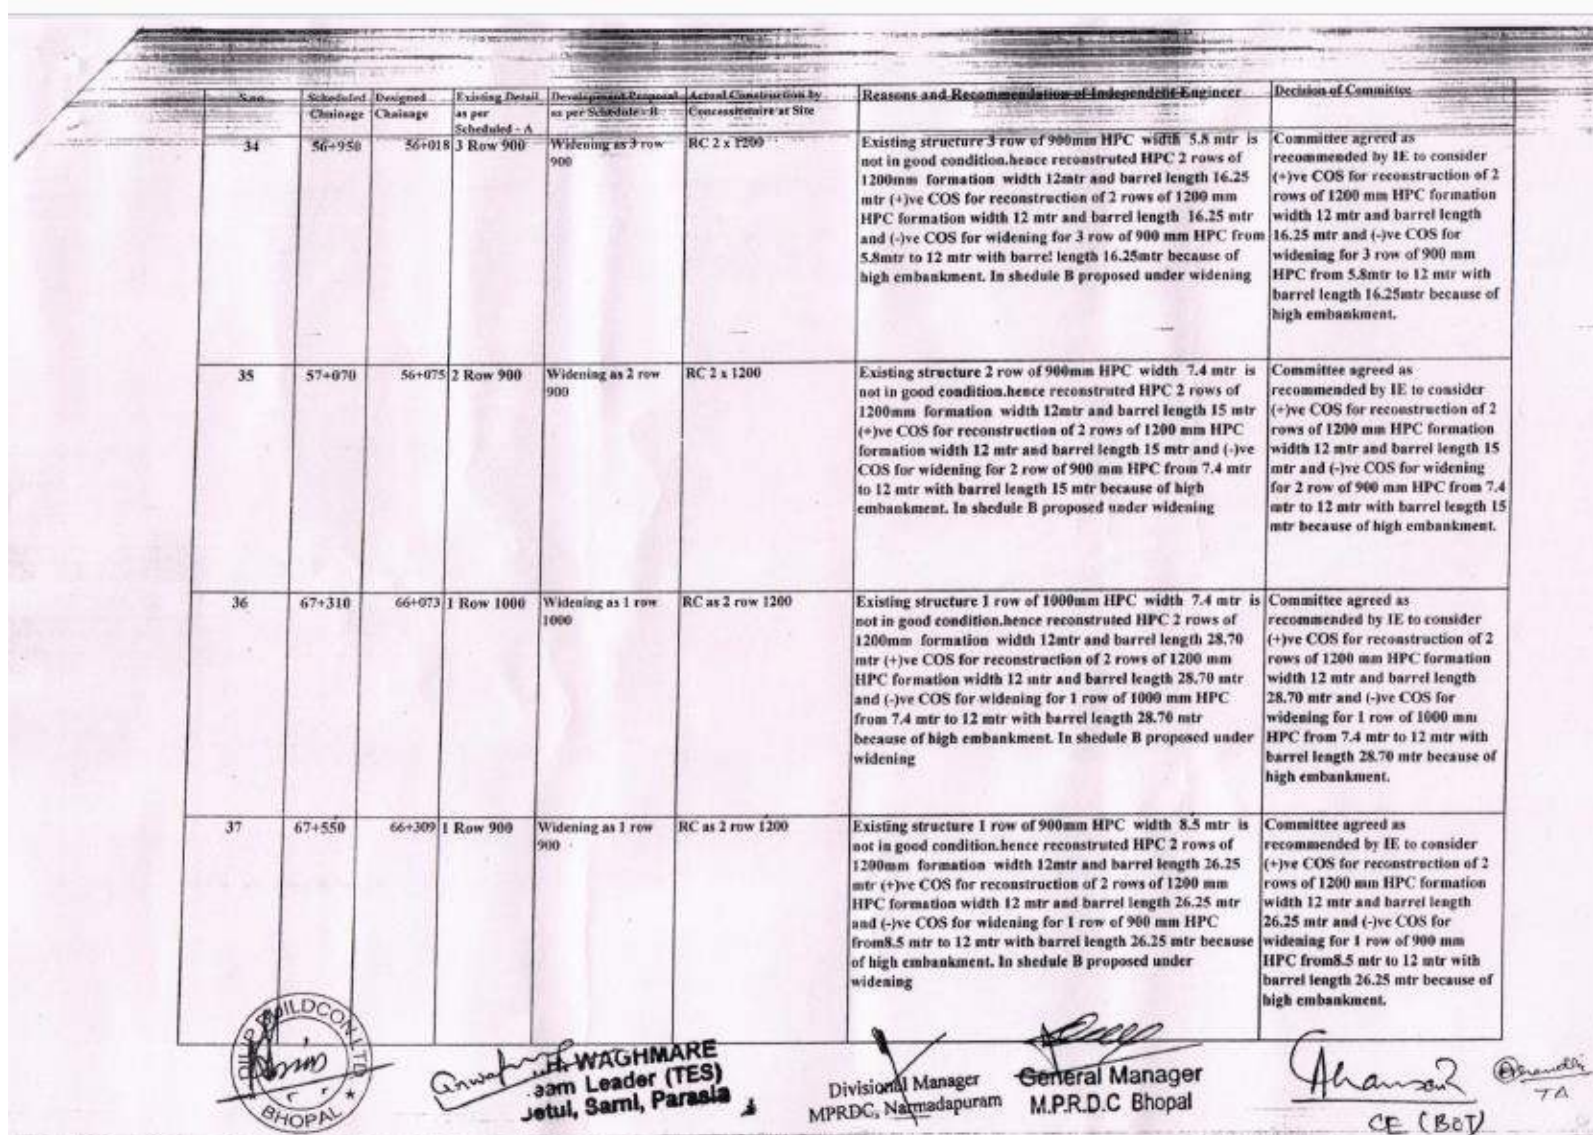 S.no
Scheduled Chainage
Designed Chainage
Existing Detail as per Scheduled - A
Development Proposal as per Schedule - B
Actual Construction by Concessionaire at Site
Reasons and Recommendation of Independent Engineer
Decision of Committee
34
56+950
56+018
3 Row 900
Widening as 3 row
900
RC 2 x 1200
Existing structure 3 row of 900mm HPC width 5.8 mtr is
not in good condition.hence reconstruted HPC 2 rows of
1200mm formation width 12mtr and barrel length 16.25
mtr (+)ve COS for reconstruction of 2 rows of 1200 mm
HPC formation width 12 mtr and barrel length 16.25 mtr
and (-)ve COS for widening for 3 row of 900 mm HPC from
5.8mtr to 12 mtr with barrel length 16.25mtr because of
high embankment. In shedule B proposed under widening
Committee agreed as
recommended by IE to consider
(+)ve COS for reconstruction of 2
rows of 1200 mm HPC formation
width 12 mtr and barrel length
16.25 mtr and (-)ve COS for
widening for 3 row of 900 mm
HPC from 5.8mtr to 12 mtr with
barrel length 16.25mtr because of
high embankment.
35
57+070
56+075
2 Row 900
Widening as 2 row
900
RC 2 x 1200
Existing structure 2 row of 900mm HPC width 7.4 mtr is
not in good condition.hence reconstruted HPC 2 rows of
1200mm formation width 12mtr and barrel length 15 mtr
(+)ve COS for reconstruction of 2 rows of 1200 mm HPC
formation width 12 mtr and barrel length 15 mtr and (-)ve
COS for widening for 2 row of 900 mm HPC from 7.4 mtr
to 12 mtr with barrel length 15 mtr because of high
embankment. In shedule B proposed under widening
Committee agreed as
recommended by IE to consider
(+)ve COS for reconstruction of 2
rows of 1200 mm HPC formation
width 12 mtr and barrel length 15
mtr and (-)ve COS for widening
for 2 row of 900 mm HPC from 7.4
mtr to 12 mtr with barrel length 15
mtr because of high embankment.
36
67+310
66+073
1 Row 1000
Widening as 1 row
1000
RC as 2 row 1200
Existing structure 1 row of 1000mm HPC width 7.4 mtr is
not in good condition.hence reconstruted HPC 2 rows of
1200mm formation width 12mtr and barrel length 28.70
mtr (+)ve COS for reconstruction of 2 rows of 1200 mm
HPC formation width 12 mtr and barrel length 28.70 mtr
and (-)ve COS for widening for 1 row of 1000 mm HPC
from 7.4 mtr to 12 mtr with barrel length 28.70 mtr
because of high embankment. In shedule B proposed under
widening
Committee agreed as
recommended by IE to consider
(+)ve COS for reconstruction of 2
rows of 1200 mm HPC formation
width 12 mtr and barrel length
28.70 mtr and (-)ve COS for
widening for 1 row of 1000 mm
HPC from 7.4 mtr to 12 mtr with
barrel length 28.70 mtr because of
high embankment.
37
67+550
66+309
1 Row 900
Widening as 1 row
900
RC as 2 row 1200
Existing structure 1 row of 900mm HPC width 8.5 mtr is
not in good condition.hence reconstruted HPC 2 rows of
1200mm formation width 12mtr and barrel length 26.25
mtr (+)ve COS for reconstruction of 2 rows of 1200 mm
HPC formation width 12 mtr and barrel length 26.25 mtr
and (-)ve COS for widening for 1 row of 900 mm HPC
from8.5 mtr to 12 mtr with barrel length 26.25 mtr because
of high embankment. In shedule B proposed under
widening
Committee agreed as
recommended by IE to consider
(+)ve COS for reconstruction of 2
rows of 1200 mm HPC formation
width 12 mtr and barrel length
26.25 mtr and (-)ve COS for
widening for 1 row of 900 mm
HPC from8.5 mtr to 12 mtr with
barrel length 26.25 mtr because of
high embankment.
BUILDCON LTD
BHOPAL
WAGHMARE
Leader (TES)
Sarni, Parasia
Divisional Manager
MPRDC, Narmadapuram
General Manager
M.P.R.D.C Bhopal
CE (BOT)
TA